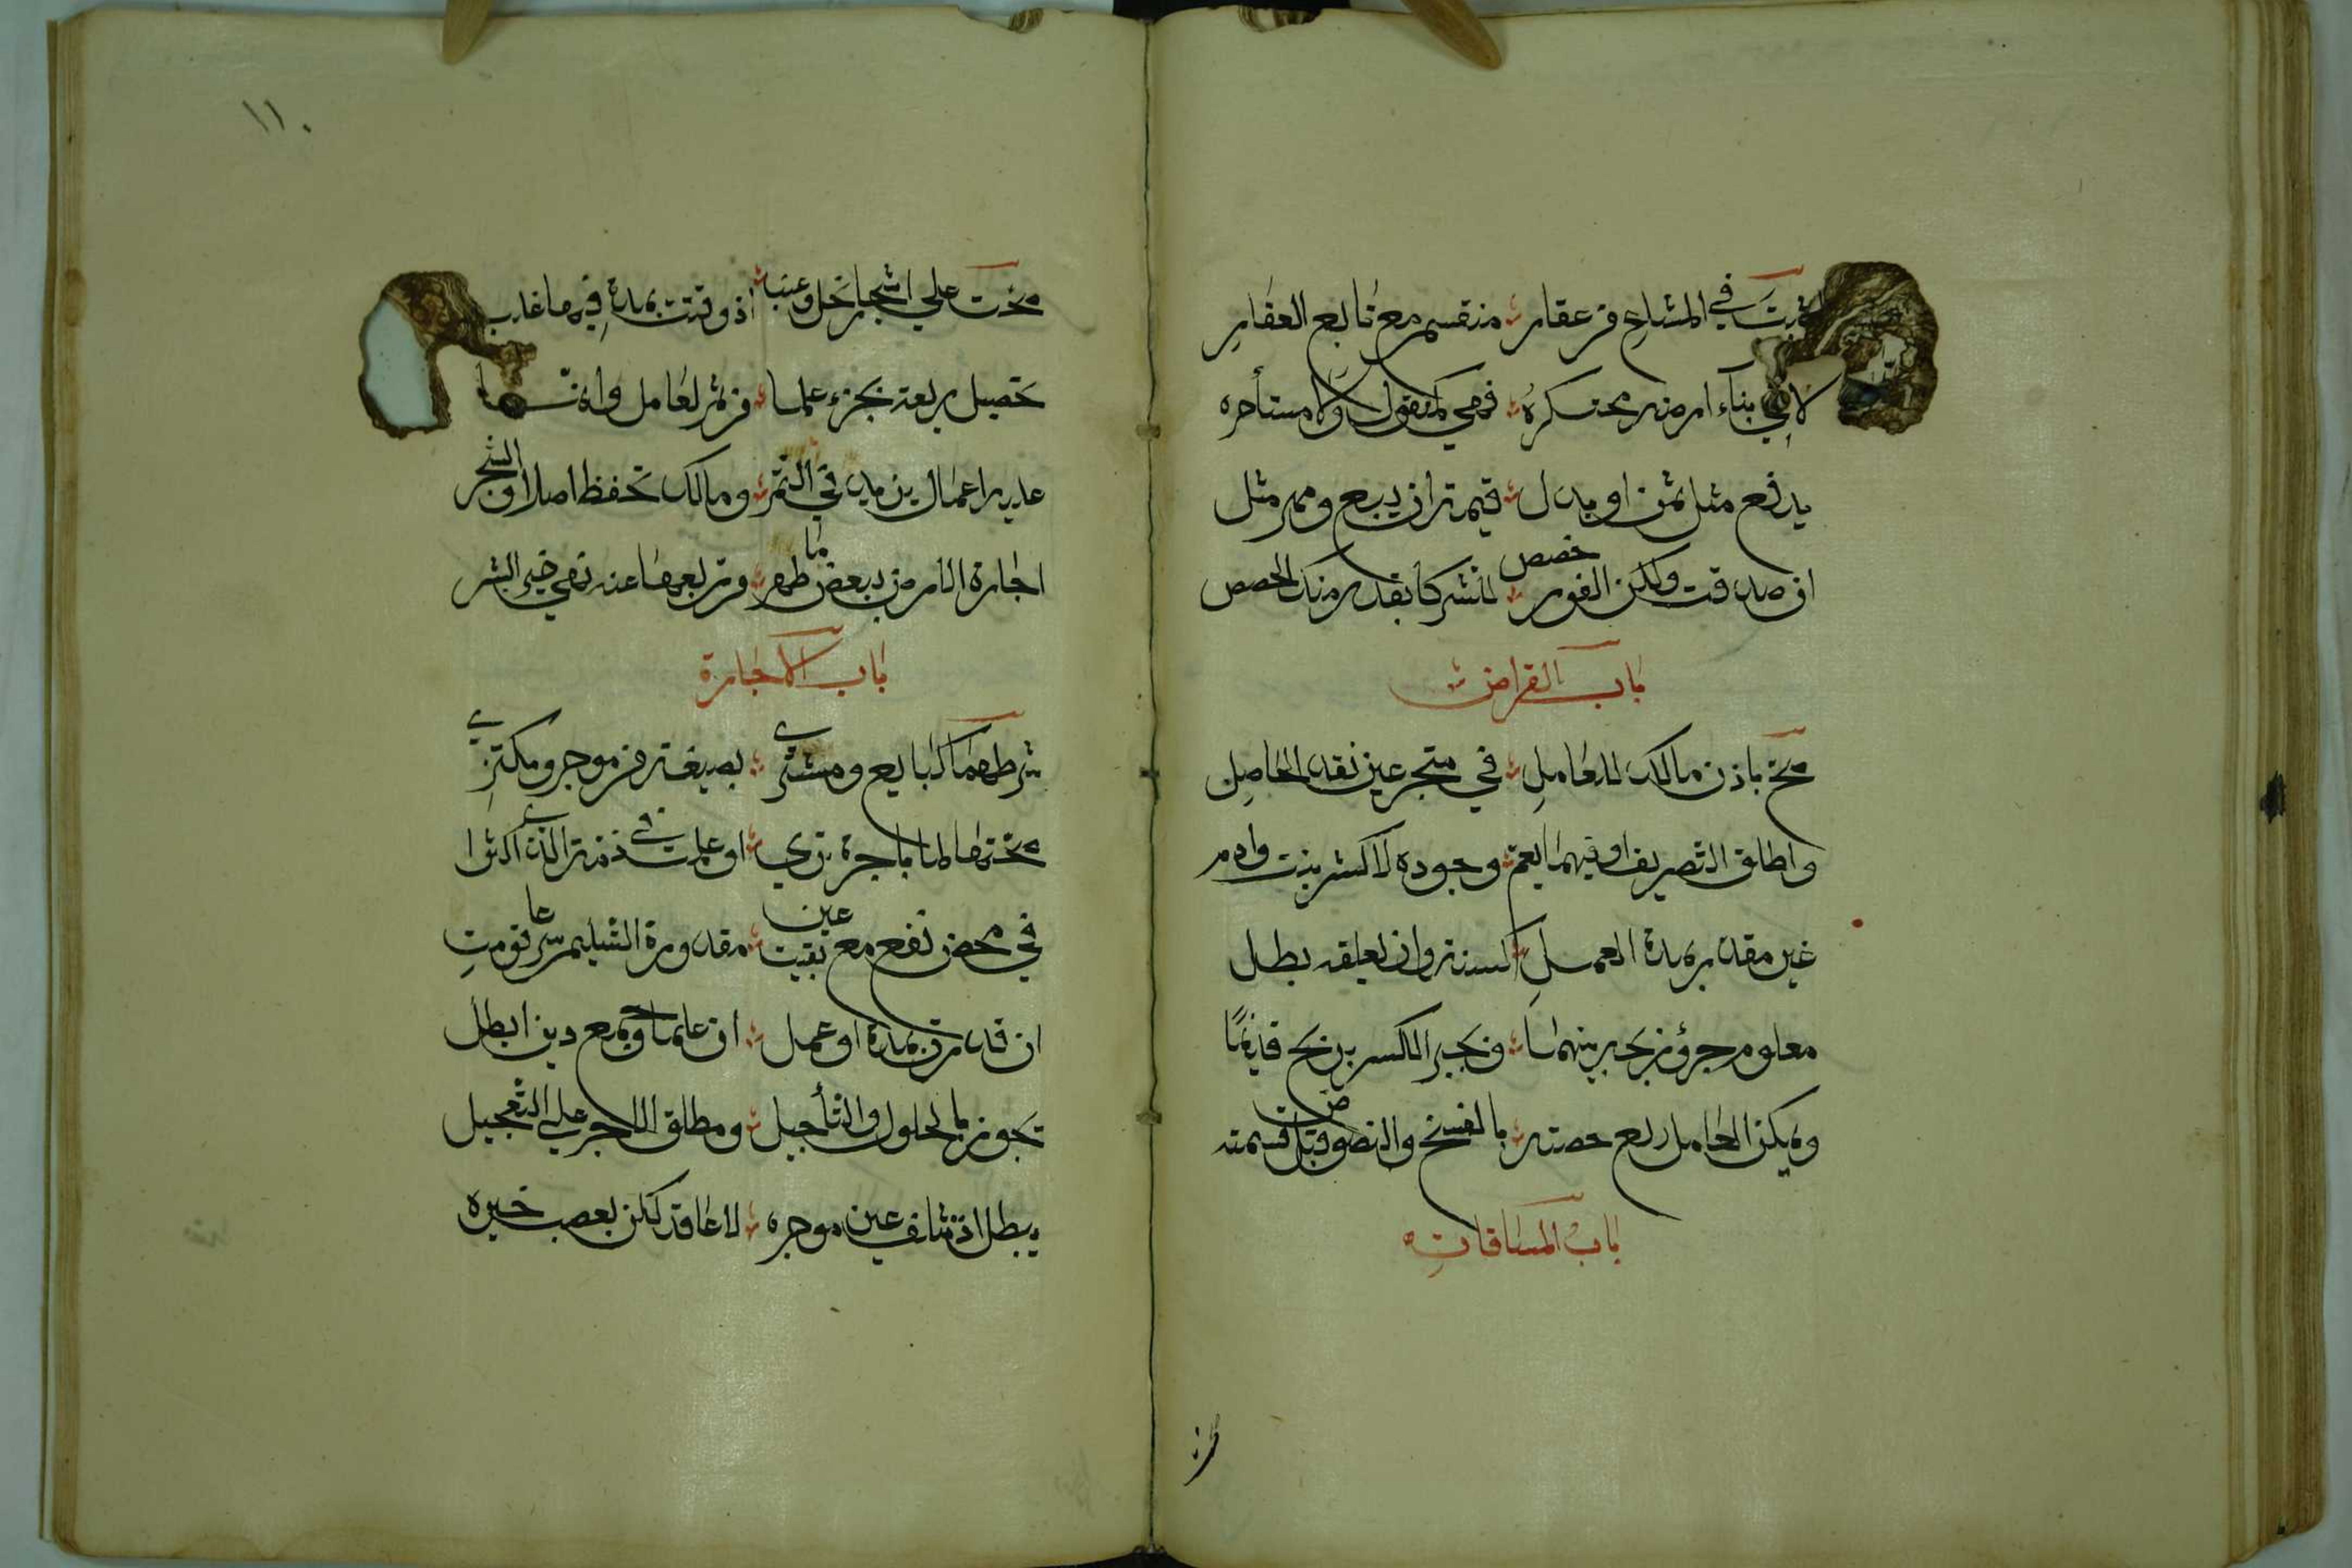 تثبت في المشاع من عقار منقسم مع تابع العقار
لا في بناء ارضه محتكره فهي كمنقول ولا مستأجره
يدفع مثل ثمن او بدل قيمته ان بيع ومهر مثل
ان صدقت ولكن الفور خصص للشركا بقدر منك الحصص
باب القراض
صح باذن مالك للعامل في متجر عين نقد الحاصل
واطلق التصريف او فيما يعم وجوده لا كشر بنت وام
غير مقدر مدة العمل كسنة وان يعلقه بطل
معلوم جزؤ ربح بينهما ويجبر الكسر بربح قد نما
ويملك العامل ربع حصته بالفسخ والنضوض قبل قسمته
باب المساقات
صحت
١١٠
صحت علي اشجار نخل وعنب اذ وقتت بمدة فيها غلب
تحصيل ريعه بجزء علما من ثمر لعامل وانما
عليه اعمال تزيد في الثمر ومالك تحفظ اصلا والشجر
اجارة الارض ببعض ما ظهر من ريعها عنه نهي خير البشر
باب الاجارة
شرطهما كبايع ومشتري بصيغة من موجر ومكتري
صحتها اما باجرة تري او علمت في ذمة الذي اكترا
في محض نفع مع عين بقيت مقدورة التسليم شرعا قومت
ان قدرت بمدة او عمل ان علما وجمع دين ابطل
تجوز بالحلول والتأجيل ومطلق الاجر علي التعجيل
يبطل اذ تتلف عين موجره لا عاقد لكن بغصب خيره